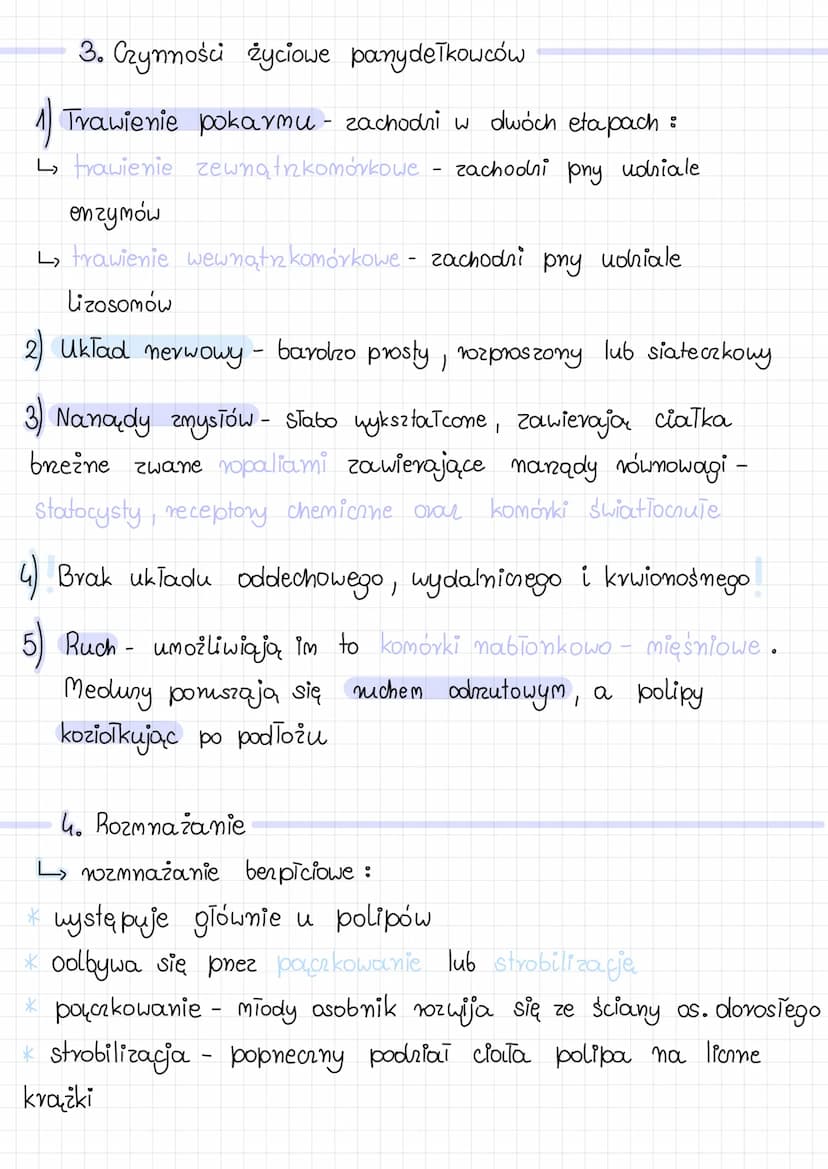 3. Czynności życiowe parzydełkowców
1) Trawienie pokarmu - zachodzi w dwóch etapach :
↳ trawienie zewnątrzkomórkowe - zachodzi przy udziale
enzymów
↳ trawienie wewnątrzkomórkowe - zachodzi przy udziale
lizosomów
2) Układ nerwowy - bardzo prosty, rozproszony lub siateczkowy
3) Narządy zmysłów - słabo wykształcone, zawierają ciałka
brzeżne zwane ropaliami zawierające narządy równowagi -
statocysty, receptory chemiczne oraz komórki światłoczułe
4) ! Brak układu oddechowego, wydalniczego i krwionośnego !
5) Ruch - umożliwiają im to komórki nabłonkowo - mięśniowe.
Meduzy poruszają się ruchem odrzutowym, a polipy
koziołkując po podłożu
4. Rozmnażanie
↳ rozmnażanie bezpłciowe :
* występuje głównie u polipów
* odbywa się przez pączkowanie lub strobilizację
* pączkowanie - młody osobnik rozwija się ze ściany os. dorosłego
* strobilizacja - poprzeczny podział ciała polipa na liczne
krążki